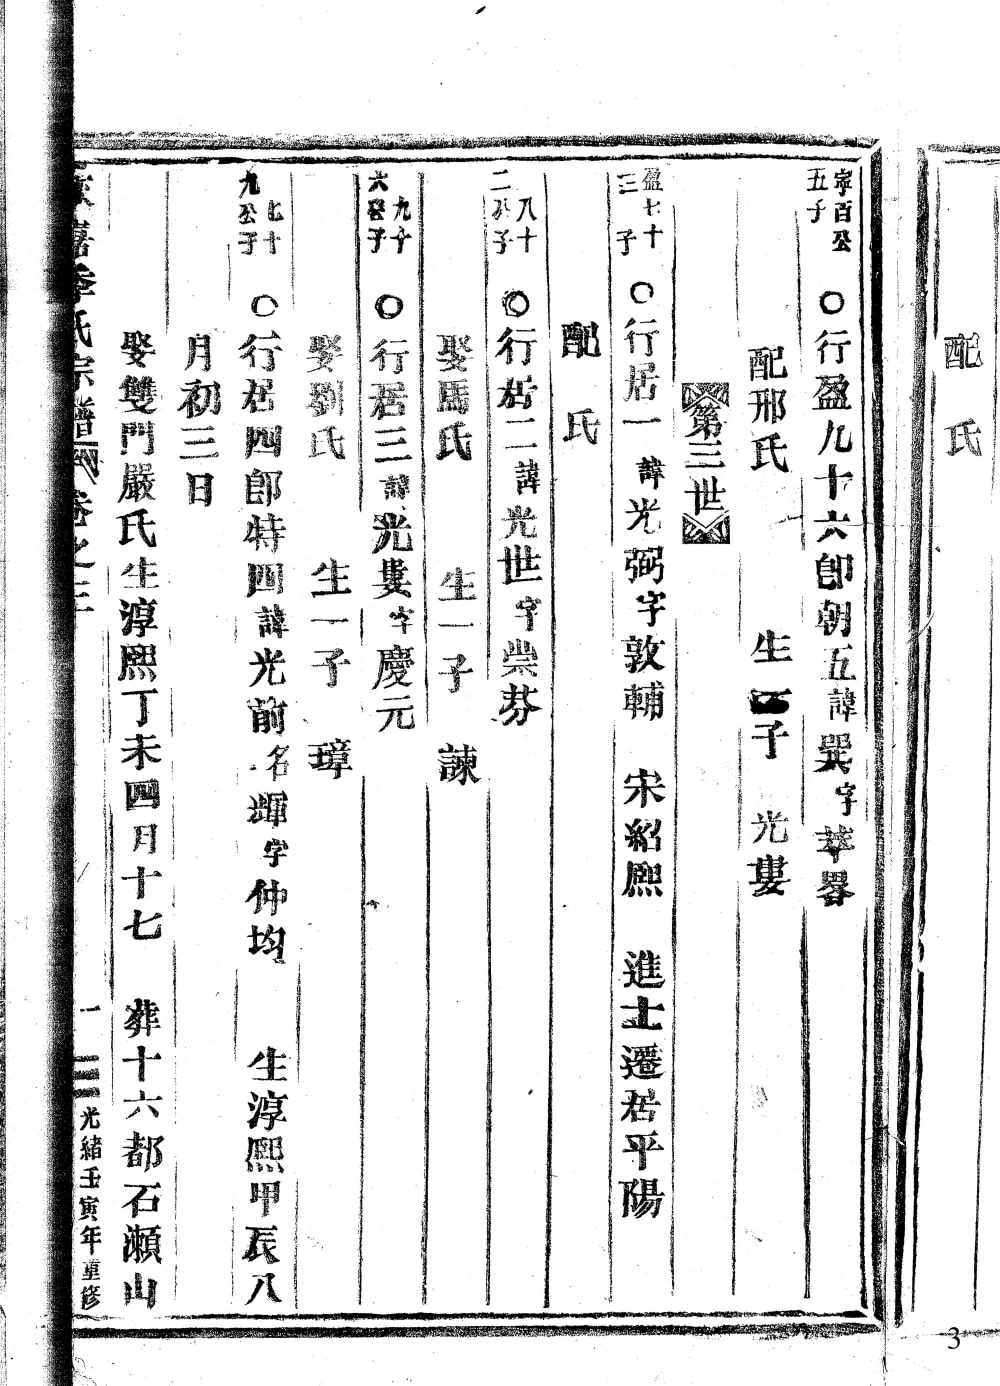 配 氏
寧百公
五子
〇行盈九十六郎朝五諱巽字萃畧
配邢氏 生一子 光婁
第三世
盈七十
三 子
〇行居一諱光弼字敦輔 宋紹熙 進士遷居平陽
配 氏
八十
二公子
〇行居二諱光世字崇芬
娶馬氏 生一子 諫
九十
六公子
〇行居三諱光婁字慶元
娶劉氏 生一子 璋
七十
九公子
〇行居四郎特四諱光前名煇字仲均 生淳熙甲辰八
月初三日
娶雙門嚴氏生淳熙丁未四月十七 葬十六都石瀬山
嘉季氏宗譜 卷之三 一 光緒壬寅年重修
3